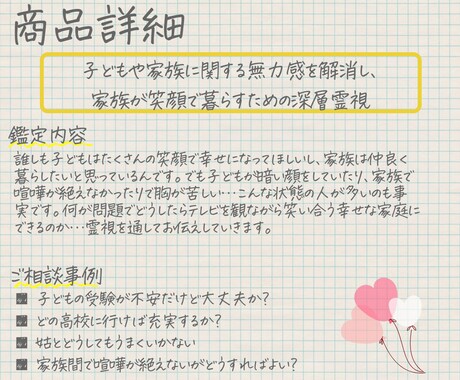 商品詳細
子どもや家族に関する無力感を解消し、
家族が笑顔で暮らすための深層霊視
鑑定内容
誰しも子どもはたくさんの笑顔で幸せになってほしいし、家族は仲良く
暮らしたいと思っているんです。でも子どもが暗い顔をしていたり、家族で
喧嘩が絶えなかったりで胸が苦しい…こんな状態の人が多いのも事
実です。何が問題でどうしたらテレビを観ながら笑い合う幸せな家庭に
できるのか…霊視を通してお伝えしていきます。
ご相談事例
子どもの受験が不安だけど大丈夫か?
どの高校に行けば充実するか?
姑とどうしてもうまくいかない
家族間で喧嘩が絶えないがどうすればよい?